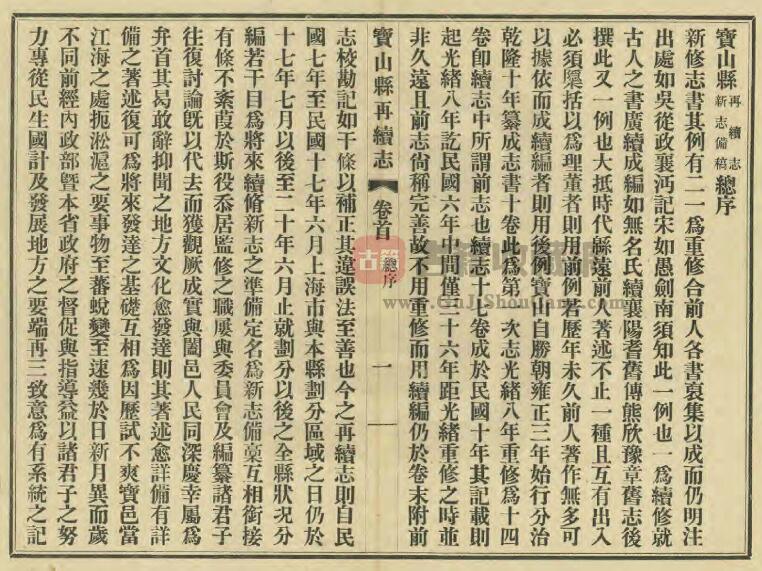 寶山縣再續志新志備稿總序
新修志書其例有二一爲重修合前人各書裒集以成而仍明注
出處如吳從政襄沔記宋如愚劍南須知此一例也一爲續修就
古人之書廣續成編如無名氏續襄陽耆舊傳熊欣豫章舊志後
撰此又一例也大抵時代緜遠前人著述不止一種且互有出入
必須櫽括以爲理董者則用前例若歷年未久前人著作無多可
以據依而成續編者則用後例寶山自勝朝雍正三年始行分治
乾隆十年纂成志書十卷此爲第一次志光緒八年重修爲十四
卷卽續志中所謂前志也續志十七卷成於民國十年其記載則
起光緒八年訖民國六年中間僅三十六年距光緒重修之時並
非久遠且前志尙稱完善故不用重修而用續編仍於卷末附前
寶山縣再續志 卷首 總序 一
志校勘記如干條以補正其違誤法至善也今之再續志則自民
國七年至民國十七年六月上海市與本縣劃分區域之日仍於
十七年七月以後至二十年六月止就劃分以後之全縣狀況分
編若干目爲將來續修新志之準備定名爲新志備稾互相銜接
有條不紊葭於斯役忝居監修之職屢與委員會及編纂諸君子
往復討論旣以代去而獲觀厥成實與闔邑人民同深慶幸屬爲
弁首其曷敢辭抑聞之地方文化愈發達則其著述愈詳備有詳
備之著述復可爲將來發達之基礎互相爲因歷試不爽寶邑當
江海之處扼淞滬之要事物至蕃蛻變至速幾於日新月異而歲
不同前經內政部曁本省政府之督促與指導益以諸君子之努
力專從民生國計及發展地方之要端再三致意爲有系統之記
古籍收藏網
www.GuJiShouCang.com